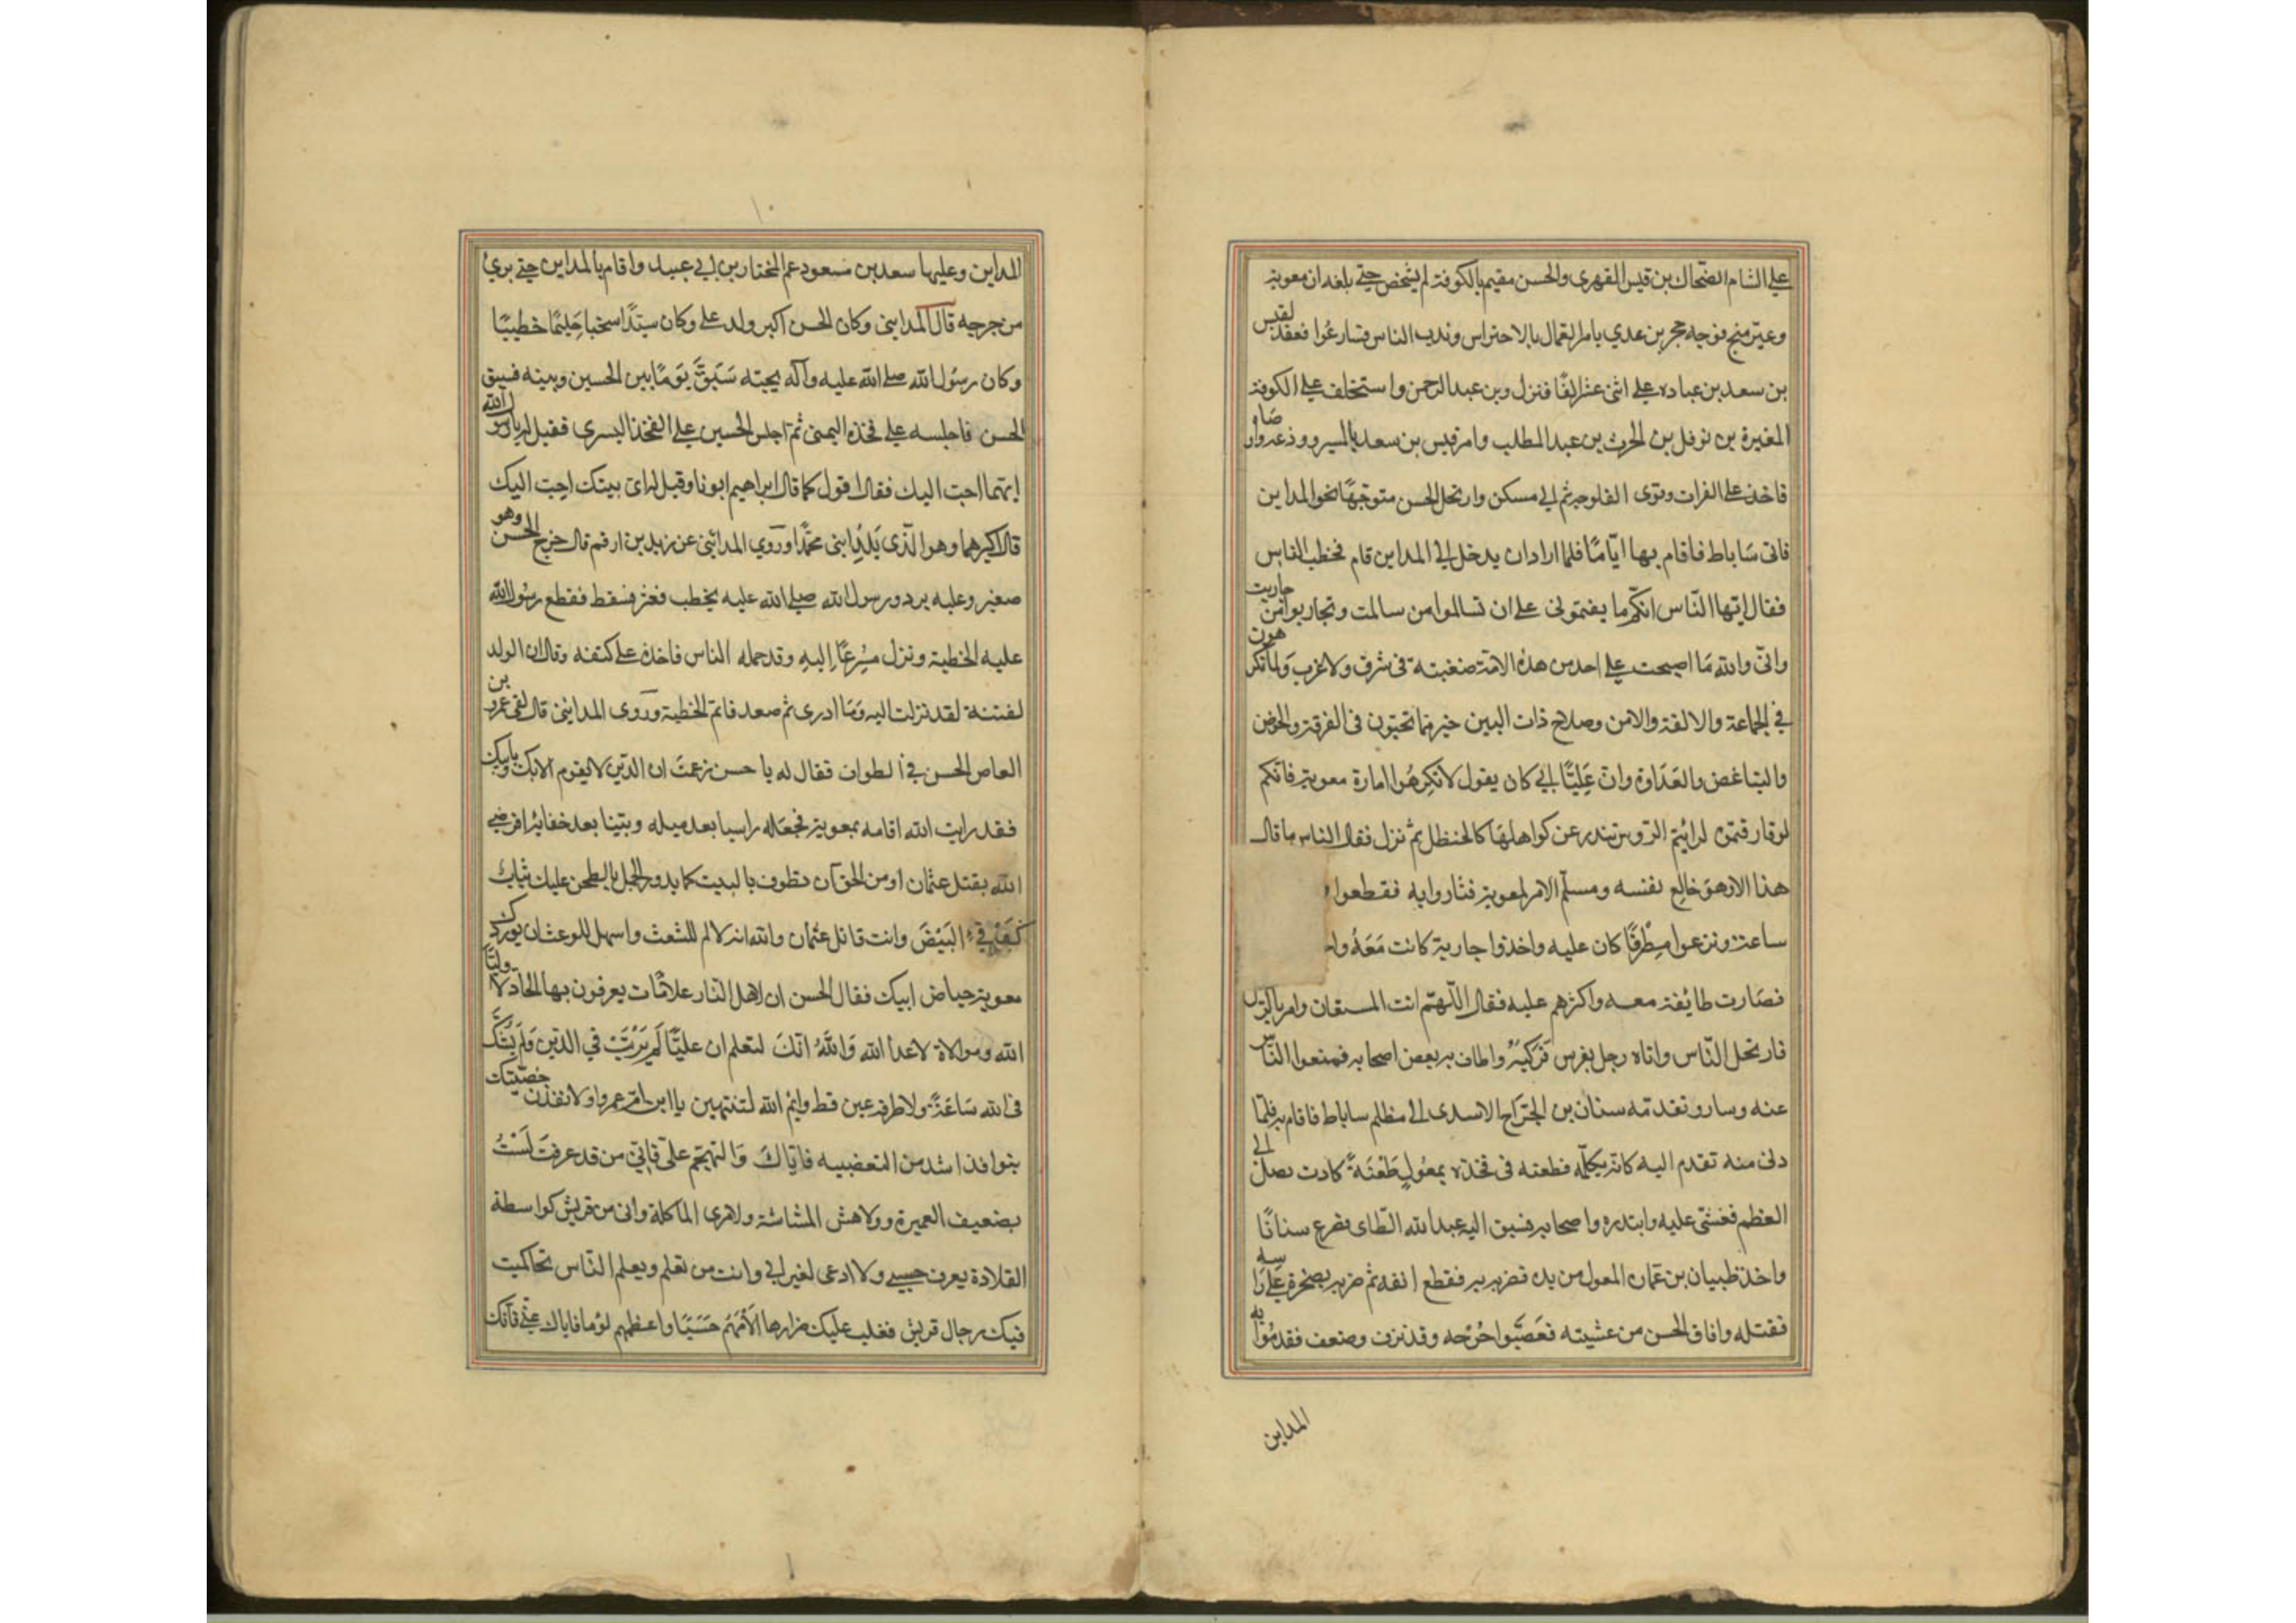 على الشام الضحاك بن قيس الفهرى والحسن مقيم بالكوفة لم يشخص حتى بلغه ان معوية
وعبر منبج فوجه حجر بن عدي يامر العمال بالاحتراس وندب الناس فسارعوا فعقد لقيس
بن سعد بن عباده على اثنى عشر الفا فنزل وبن عبد الرحمن واستخلف على الكوفة
المغيرة بن نوفل بن الحرث بن عبد المطلب وامر قيس بن سعد بالمسير وودعه واوصاه
فاخذ على الفرات وقرى الفلوجه ثم الى مسكن وارتحل الحسن متوجها نحو المداين
فاتى ساباط فاقام بها اياما فلما اراد ان يدخل الى المداين قام فخطب الناس
فقال ايها الناس انكم بايعتمونى على ان تسالموا من سالمت وتحاربوا من حاربت
وانى والله ما اصبحت على احد من هذه الامة ضغينة فى شرق ولا غرب ولما تكرهون
في الجماعة والالفة والامن وصلاح ذات البين خير مما تحبون فى الفرقة والخوف
والتباغض والعداوة وان عليا ابي كان يقول لا تكرهوا امارة معوية فانكم
لو فارقتموه لرايتم الروس تندر عن كواهلها كالحنظل ثم نزل فقال الناس ما قال
هذا الا وهو خالع نفسه ومسلم الامر لمعوية فثاروا به فقطعوا
ساعة ونزعوا مطرفا كان عليه واخذوا جارية كانت معه وا
فصارت طائفة معه واكثرهم عليه فقال اللهم انت المستعان وامر بالرحيل
فارتحل الناس واتاه رجل بفرس فركبه واطاف به بعض اصحابه فمنعوا الناس
عنه وسار وتقدمه سنان بن الجراح الاسدى الى مظلم ساباط فاقام به فلما
دنى منه تقدم اليه كانه يكلمه فطعنه فى فخذه بمعول طعنة كادت تصل الى
العظم فغشى عليه وابتدره واصحابه فسبق اليه عبد الله الطاى فصرع سنانا
واخذ ظبيان بن عمان المعول من يده فضربه به فقطع انفه ثم ضربه بصخرة على راسه
فقتله وافاق الحسن من غشيته فعصبوا جرحه وقد نزف وضعف فقدموا به
المداين
المداين وعليها سعد بن مسعود عم المختار بن ابي عبيد واقام بالمداين حتى برئ
من جرحه قال المداينى وكان الحسن اكبر ولد على وكان سيدا سخيا حليما خطيبا
وكان رسول الله صلى الله عليه وآله يحبه سبق يوما بين الحسين وبينه فسبق
الحسن فاجلسه على فخذه اليمنى ثم اجلس الحسين على الفخذ اليسرى فقيل له يا رسول الله
ايهما احب اليك فقال اقول كما قال ابراهيم ابونا وقيل له اى بنيك احب اليك
قال اكبرهما وهو الذى يلد ابنى محمدا وروي المداينى عن زيد بن ارقم قال خرج الحسن وهو
صغير وعليه برد ورسول الله صلى الله عليه يخطب فعثر فسقط فقطع رسول الله
عليه الخطبة ونزل مسرعا اليه وقد حمله الناس فاخذه على كتفه وقال ان الولد
لفتنة لقد نزلت اليه وما ادرى ثم صعد فاتم الخطبة وروى المداينى قال لقى عمرو بن
العاص الحسن في الطواف فقال له يا حسن زعمت ان الدين لا يقوم الا بك وبابيك
فقد رايت الله اقامه بمعوية فجعله راسيا بعد ميله وبينا بعد خفائه افرضي
الله بقتل عثمان او من الحق ان تطوف بالبيت كما يدور الجمل بالطحن عليك ثياب
البيض وانت قاتل عثمان والله انه لالم للشعث واسهل للوعث ان يوردك
معوية حياض ابيك فقال الحسن ان لاهل النار علامات يعرفون بها الحادا لاولياء
الله وموالاة لاعدا الله والله انك لتعلم ان عليا لم يرتب في الدين ولم يشك
فى الله ساعة ولا طرفه عين قط وايم الله لتنتهين يا ابن ام عمرو او لانفذن حضنيك
بنوافذ اشد من القعضبيه فاياك والتهجم على فانى من قد عرفت لست
بضعيف الغميزة وولا هش المشاشة ولا مرى الماكلة وانى من قريش كواسطة
القلادة يعرف حسبي ولا ادعى لغير ابي وانت من تعلم ويعلم الناس تحاكمت
فيك رجال قريش فغلب عليك جزارها الأمهم حسبا واعظمهم لؤما فاياك عنى فانك